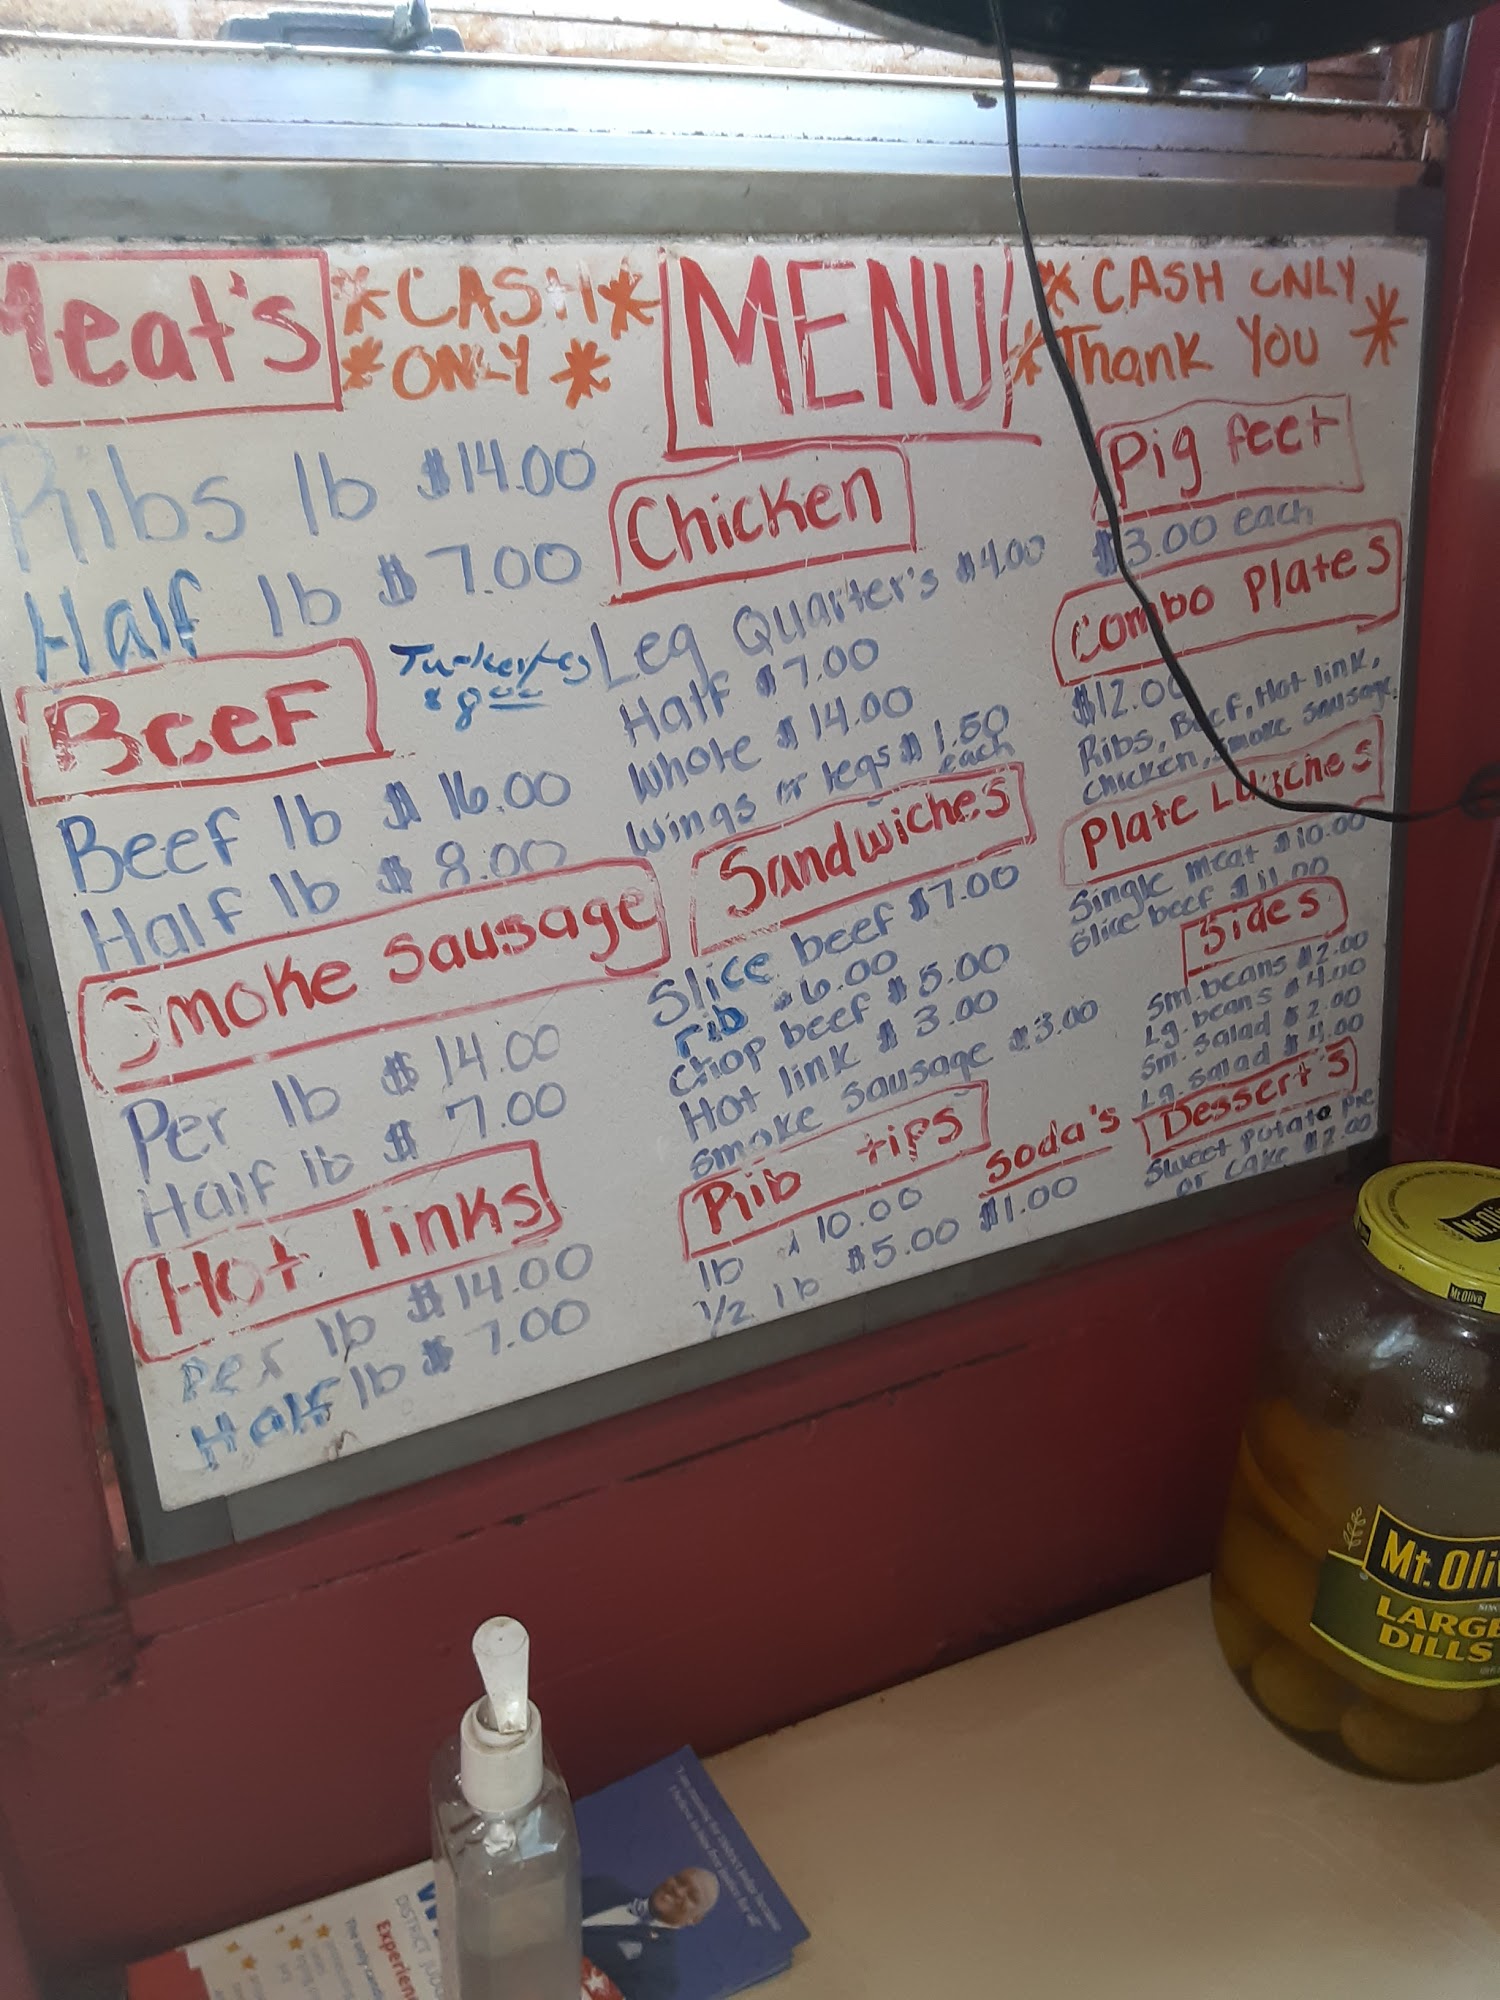 Meat's
*CASH*
*ONLY*
MENU
* CASH ONLY
* Thank You *
Ribs lb $14.00
Half lb $7.00
Beef
Turkey leg
$8.00
Beef lb $16.00
Half lb $8.00
Smoke Sausage
Per lb $14.00
Half lb $7.00
Hot links
Per lb $14.00
Half lb $7.00
Chicken
Leg Quarter's $4.00
Half $7.00
Whole $14.00
Wings or legs $1.50
each
Sandwiches
Slice beef $7.00
rib $6.00
Chop beef $5.00
Hot link $3.00
Smoke Sausage $3.00
Rib tips
lb $10.00
1/2 lb $5.00
Soda's
$1.00
Pig feet
$3.00 each
Combo Plates
$12.00
Ribs, Beef, Hot link,
Chicken, Smoke Sausage
Plate Lunches
Single meat $10.00
Slice beef $11.00
Sides
Sm. beans $2.00
Lg. beans $4.00
Sm. Salad $2.00
Lg. Salad $4.00
Dessert's
Sweet Potato Pie
or Cake $2.00
Mt. Olive
Mt. Oli
LARGE
DILLS
DISTRICT JUD
Experien